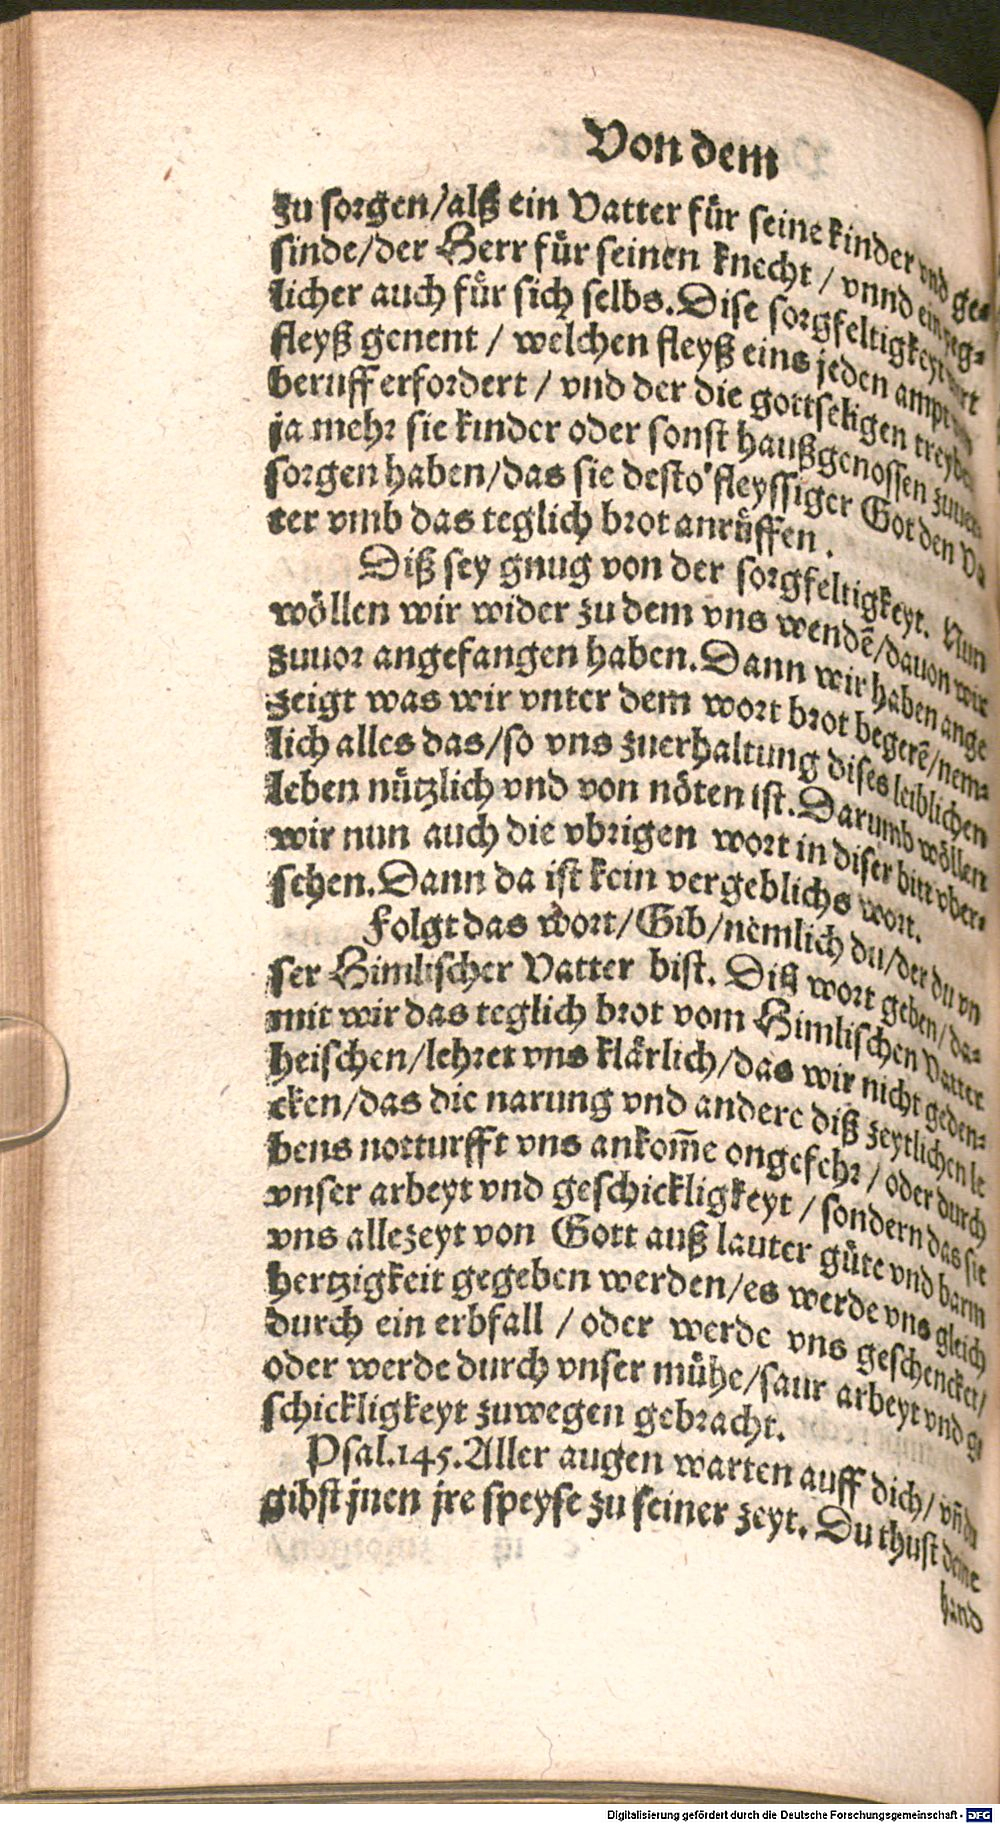 Von dem
zu sorgen/alß ein Vatter für seine kinder vnd ge-
sinde/der Herr für seinen knecht / vnnd ein yeg-
licher auch für sich selbs. Dise sorgfeltigkeyt wirt
fleyß genent / welchen fleyß eins jeden ampt vnd
beruff erfordert / vnd der die gottseligen treybet
ja mehr sie kinder oder sonst haußgenossen zuuer-
sorgen haben/das sie desto fleyssiger Got den Va
ter vmb das teglich brot anrüffen.
Diß sey gnug von der sorgfeltigkeyt. Nun
wöllen wir wider zu dem vns wendē/dauon wir
zuuor angefangen haben. Dann wir haben ange
zeigt was wir vnter dem wort brot begerē/nem-
lich alles das/so vns zuerhaltung dises leiblichen
leben nützlich vnd von nöten ist. Darumb wöllen
wir nun auch die vbrigen wort in diser bitt vber-
sehen. Dann da ist kein vergeblichs wort.
Folgt das wort/Gib/nemlich du/der du vn
ser Himlischer Vatter bist. Diß wort geben/da-
mit wir das teglich brot vom Himlischen Vatter
heischen/lehret vns klärlich/das wir nicht geden-
cken/das die narung vnd andere diß zeytlichen le
bens notturfft vns ankom̄e ongefehr / oder durch
vnser arbeyt vnd geschickligkeyt / sondern das sie
vns allezeyt von Gott auß lauter güte vnd barm
hertzigkeit gegeben werden/es werde vns gleich
durch ein erbfall / oder werde vns geschencket/
oder werde durch vnser mühe/saur arbeyt vnd ge
schickligkeyt zuwegen gebracht.
Psal.145. Aller augen warten auff dich/ vn̄ du
gibst jnen jre speyse zu seiner zeyt. Du thust deine
hand
Digitalisierung gefördert durch die Deutsche Forschungsgemeinschaft - DFG